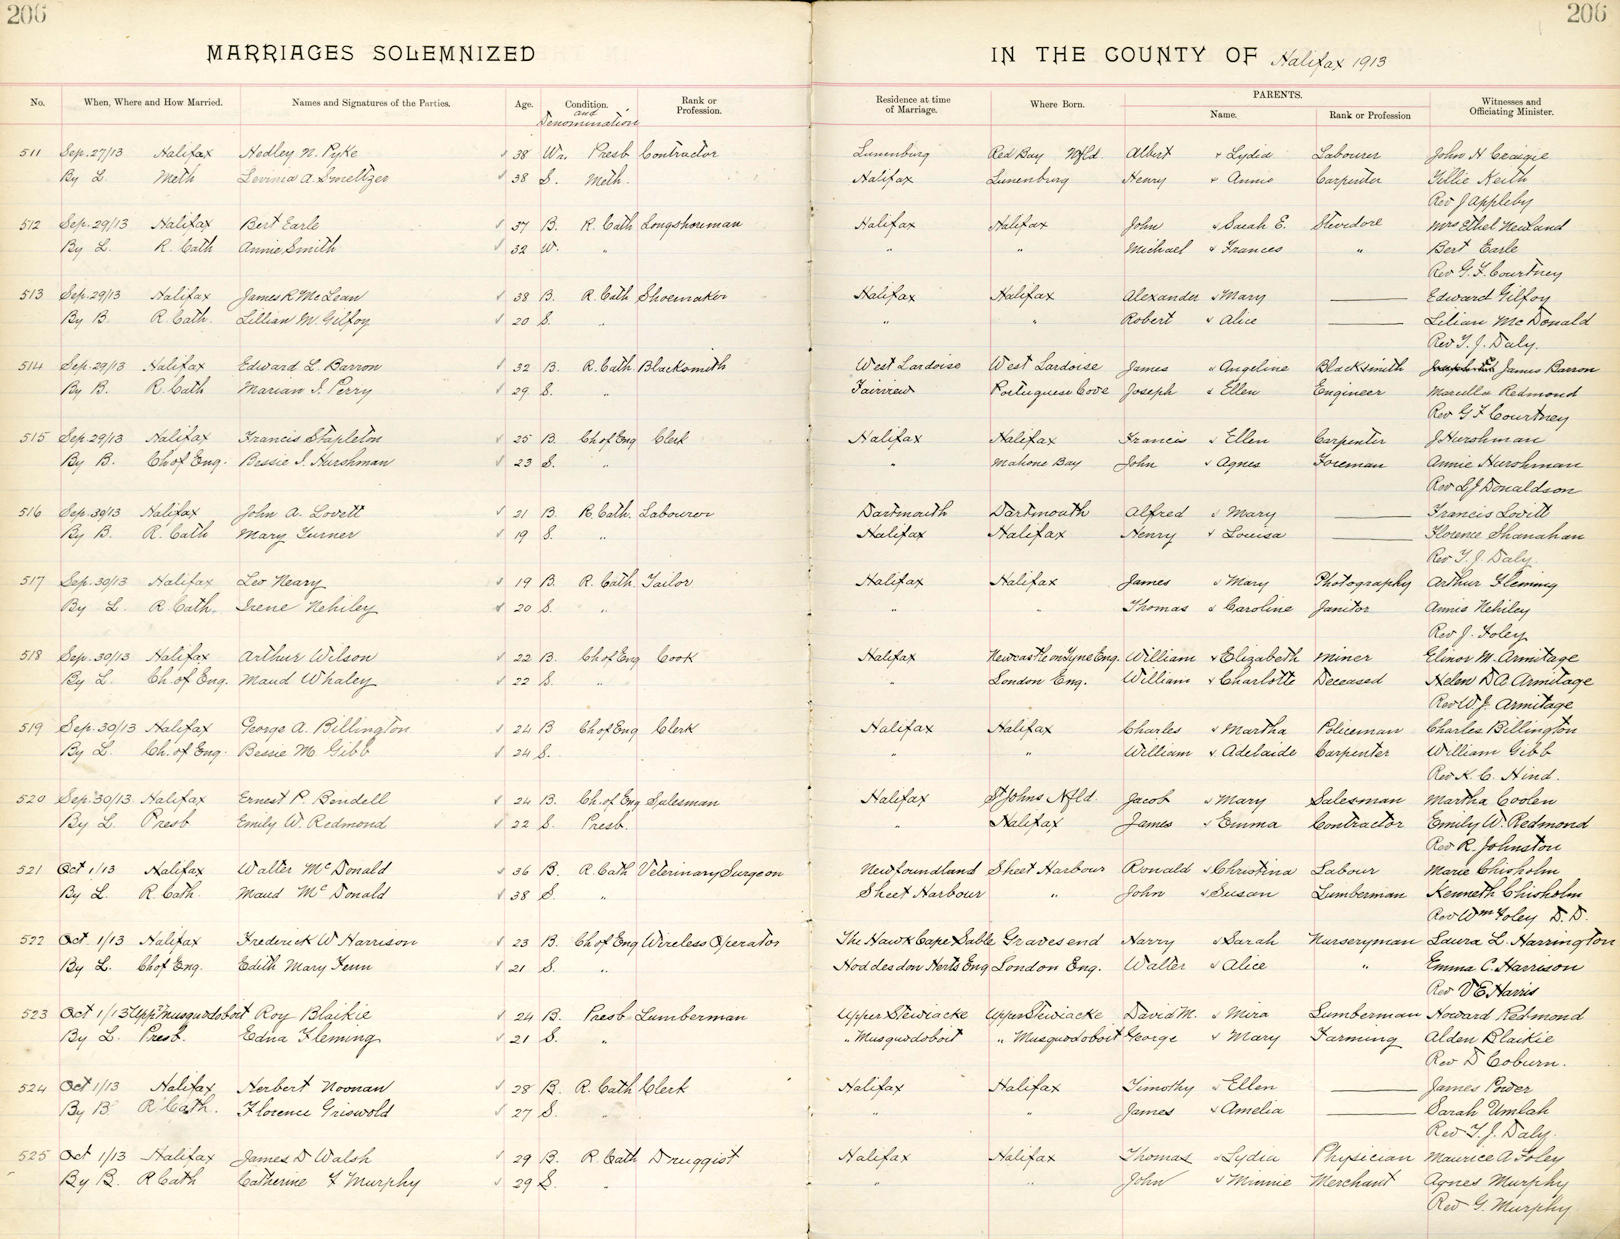 206 206
MARRIAGES SOLEMNIZED IN THE COUNTY OF Halifax 1913
No. When, Where and How Married. Names and Signatures of the Parties. Age. Condition. and Denomination Rank or Profession. Residence at time of Marriage. Where Born. PARENTS. Name. Rank or Profession Witnesses and Officiating Minister.
511 Sep. 27/13 Halifax Hedley N. Pyke 38 Wr. Presb Contractor Lunenburg Red Bay Nfld Albert & Lydia Labourer John H Craigie
By L. Meth Levinia A. Smeltzer 38 S. Meth. Halifax Lunenburg Henry & Annie Carpenter Tillie Keith
Rev J Appleby
512 Sep. 29/13 Halifax Bert Earle 37 B. R. Cath Longshoreman Halifax Halifax John & Sarah E. Stevedore Mrs Ethel Newland
By L. R. Cath Annie Smith 32 W. " " " Michael & Frances " Bert Earle
Rev G. F. Courtney
513 Sep. 29/13 Halifax James R McLean 38 B. R. Cath Shoemaker Halifax Halifax Alexander & Mary Edward Gilfoy
By B. R. Cath. Lillian M. Gilfoy 20 S. " " " Robert & Alice Lilian McDonald
Rev T. J. Daly.
514 Sep. 29/13 Halifax Edward L. Barron 32 B. R. Cath. Blacksmith West Lardoise West Lardoise James & Angeline Blacksmith James Barron
By B. R. Cath Marian I. Perry 29 S. " Fairview Portuguese Cove Joseph & Ellen Engineer Marcella Redmond
Rev G F Courtney
515 Sep. 29/13 Halifax Francis Stapleton 25 B. Ch of Eng Clerk Halifax Halifax Francis & Ellen Carpenter J Hurshman
By B. Ch of Eng. Bessie I. Hurshman 23 S. " " Mahone Bay John & Agnes Foreman Annie Hurshman
Rev L J Donaldson
516 Sep. 30/13 Halifax John A. Lovett 21 B. R. Cath. Labourer Dartmouth Dartmouth Alfred & Mary Francis Lovitt
By B. R. Cath Mary Turner 19 S. " Halifax Halifax Henry & Louisa Florence Shanahan
Rev T. J. Daly.
517 Sep. 30/13 Halifax Leo Neary 19 B. R. Cath. Tailor Halifax Halifax James & Mary Photography Arthur Fleming
By L. R. Cath. Irene Nehiley 20 S. " " " Thomas & Caroline Janitor Annie Nehiley
Rev J. Foley
518 Sep. 30/13 Halifax Arthur Wilson 22 B. Ch of Eng Cook Halifax Newcastle on Tyne Eng. William & Elizabeth Miner Elinor M. Armitage
By L. Ch. of Eng. Maud Whaley 22 S. " " London Eng. William & Charlotte Deceased Helen D. A. Armitage
Rev W. J. Armitage
519 Sep. 30/13 Halifax George A. Billington 24 B Ch of Eng Clerk Halifax Halifax Charles & Martha Policeman Charles Billington
By L. Ch. of Eng. Bessie M Gibb 24 S. " " William & Adelaide Carpenter William Gibb
Rev K. C. Hind.
520 Sep. 30/13 Halifax Ernest P. Bendell 24 B. Ch. of Eng Salesman Halifax St Johns Nfld. Jacob & Mary Salesman Martha Coolen
By L. Presb Emily W. Redmond 22 S. Presb. " Halifax James & Emma Contractor Emily W. Redmond
Rev R. Johnston
521 Oct 1/13 Halifax Walter McDonald 36 B. R. Cath Veterinary Surgeon Newfoundland Sheet Harbour Ronald & Christina Labour Marie Chisholm
By L. R. Cath. Maud McDonald 38 S. " Sheet Harbour " John & Susan Lumberman Kenneth Chisholm
Rev Wm Foley D. D.
522 Oct. 1/13 Halifax Frederick W Harrison 23 B. Ch of Eng Wireless Operator The Hawk Cape Sable Gravesend Harry & Sarah Nurseryman Laura L. Harrington
By L. Ch of Eng. Edith Mary Fenn 21 S. " Hoddesdon Herts Eng London Eng. Walter & Alice " Emma C. Harrison
Rev V E Harris
523 Oct 1/13 Uppr Musquodoboit Roy Blaikie 24 B. Presb Lumberman Upper Stewiacke Upper Stewiacke David M. & Mira Lumberman Howard Redmond
By L. Presb. Edna Fleming 21 S. " " Musquodoboit " Musquodoboit George & Mary Farming Alden Blaikie
Rev D Coburn.
524 Oct 1/13 Halifax Herbert Noonan 28 B. R. Cath Clerk Halifax Halifax Timothy & Ellen James Power
By B R Cath. Florence Griswold 27 S. " " " James & Amelia Sarah Umlah
Rev T. J. Daly.
525 Oct 1/13 Halifax James D Walsh 29 B. R. Cath Druggist Halifax Halifax Thomas & Lydia Physician Maurice A Foley
By B. R Cath Catherine F Murphy 29 S. " " " John & Minnie Merchant Agnes Murphy
Rev G. Murphy